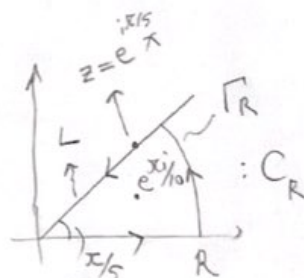 z = e^{iπ/5} x
Γ_R
L
e^{πi/10}
: C_R
π/5
R